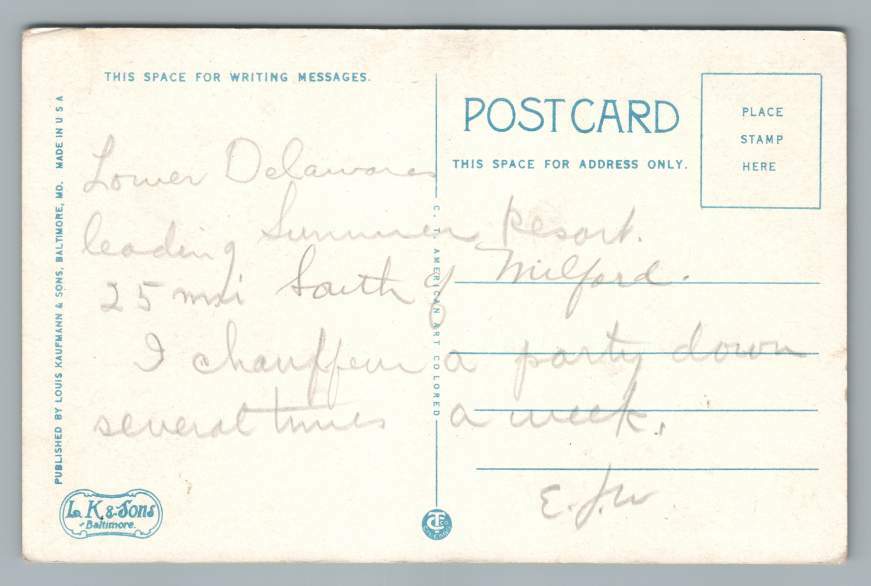 THIS SPACE FOR WRITING MESSAGES.
POST CARD
THIS SPACE FOR ADDRESS ONLY.
PLACE
STAMP
HERE
PUBLISHED BY LOUIS KAUFMANN & SONS, BALTIMORE, MD. MADE IN U S A
C. T. AMERICAN ART COLORED
Lower Delawares
leading Summer Resort.
25 mi South of Milford.
I chauffeur a party down
several times a week.
E.J.W
L. K. & Sons
Baltimore.